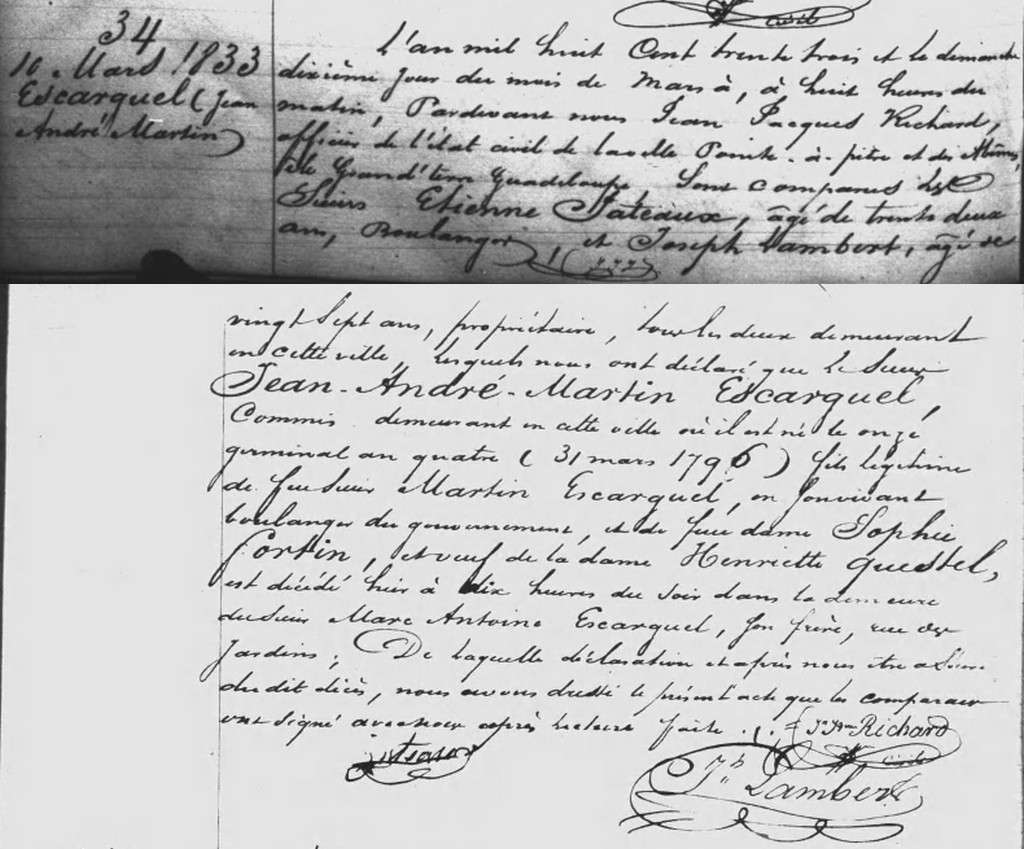 34
10 Mars 1833
Escarquel (Jean
André Martin)
civil
L'an mil huit Cent trente trois et le dimanche
dixième jour du mois de Mars à, à huit heures du
matin, Pardevant nous Jean Jacques Richard,
officier de l'état civil de la ville Pointe-à-pitre et des Abîmes,
île Grand'terre Guadeloupe, Sont comparus les
Sieurs Etienne Jateaux, âgé de trente deux
ans, Boulanger, et Joseph Lambert, âgé de
vingt Sept ans, propriétaire, tous les deux demeurant
en cette ville, lesquels nous ont déclaré que le Sieur
Jean-André-Martin Escarquel,
Commis demeurant en cette ville où il est né le onze
germinal an quatre (31 mars 1796) fils légitime
de feu Sieur Martin Escarquel, en Son vivant
boulanger du gouvernement, et de feue dame Sophie
Fortin, et veuf de la dame Henriette Questel,
est décédé hier à dix heures du Soir dans la demeure
du Sieur Marc Antoine Escarquel, Son frère, rue des
Jardins; De laquelle déclaration et après nous être assurés
du dit décès, nous avons dressé le présent acte que les comparans
ont Signé avec nous après lecture faite.
Jn Jes Richard
civil
Jh Lambert